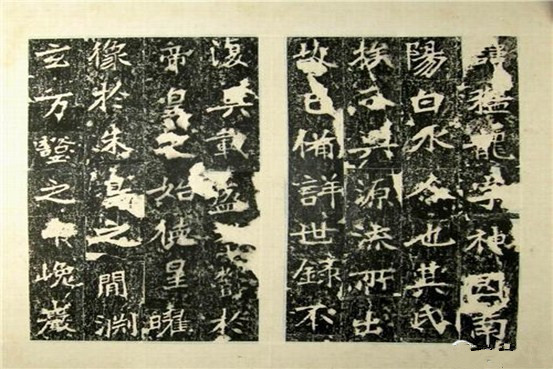 諱猛龍字神冏南
陽白水人也其氏
族分興源流所出
故已備詳世錄不
復具載盛蓄於
帝皇之始德星曜
像於朱鳥之間淵
玄万壑之中巘巖